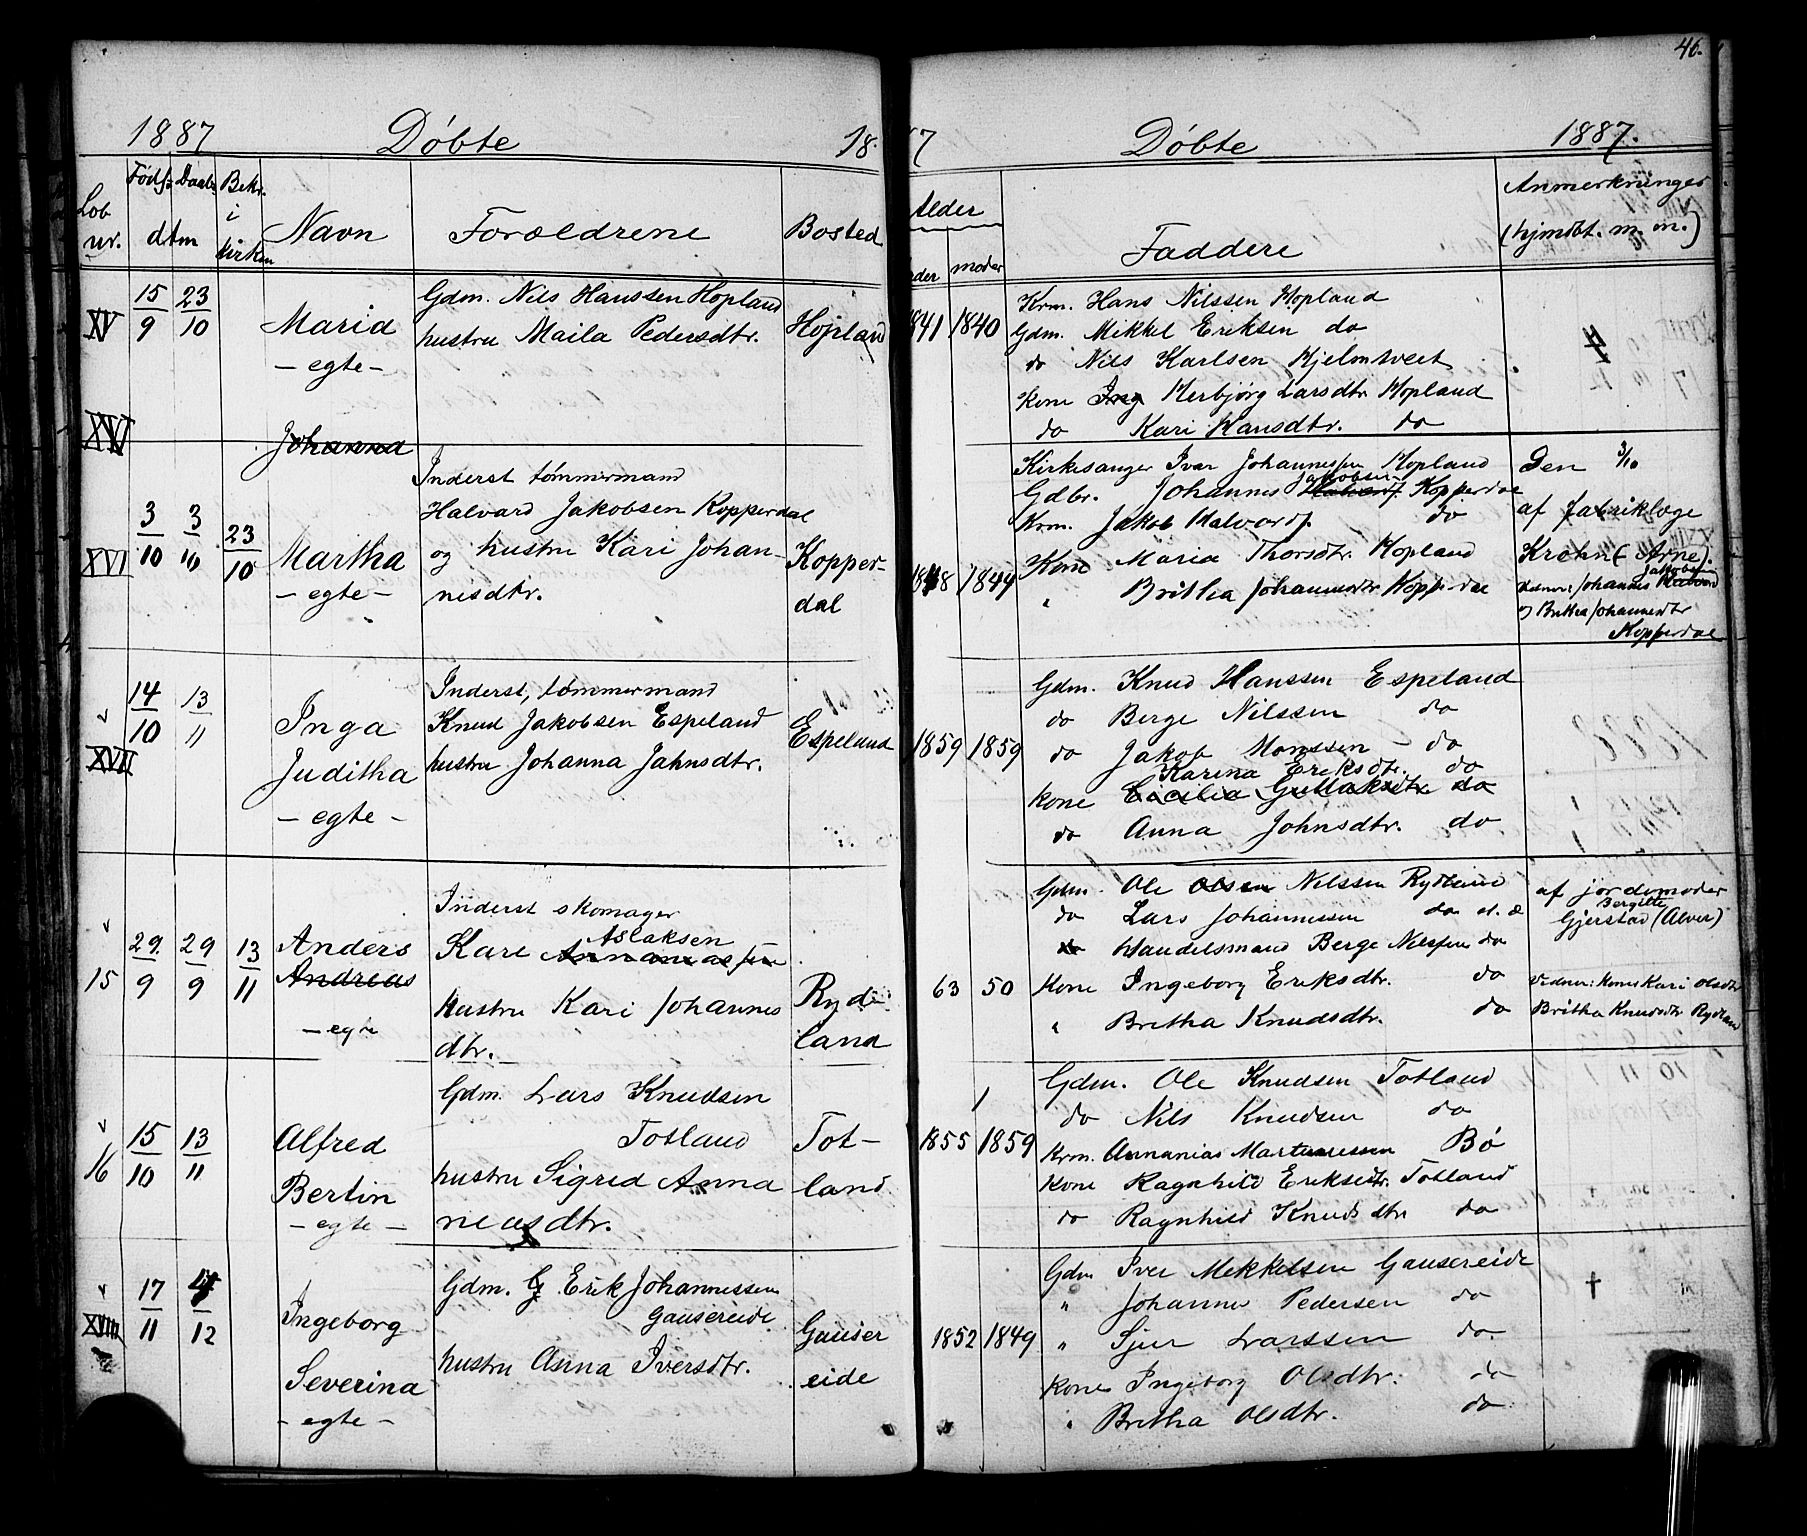 46.
1887 Döbte 18
7 Döbte 1887.
Lob nr. Föds Daabs dtm Bekr. i kirken Navn Forældrene Bosted
Alder
moder Faddere
Anmerkninger
(hjmdbt. m. m.)
XV 15/9 23/10 Maria
- egte -
Gdm. Nils Hanssen Hopland
hustru Maila Pedersdtr.
Hopland
1841 1840
Krm. Hans Nilssen Hopland
Gdm. Mikkel Eriksen do
do Nils Karlsen Hjelmtveit
Kone Ing Herbjörg Larsdtr Hopland
do Kari Hansdtr. do
XVI Johanna
XVI 3/10 3/10 23/10 Martha
- egte -
Inderst tömmermand
Halvard Jakobsen Kopperdal
og hustru Kari Johan-
nisdtr.
Kopper-
dal
1848 1844
Kirkesanger Ivar Johannessen Hopland
Jakobsen
Gdbr. Johannes Halvords. Kopperdae
Krm. Jakob Halvords. do
Kone Maria Thorsdtr. Hopland
" Britha Johannesdtr Kopperdae
Den 3/10
af fabriklæge
Krohn (Arne).
Jakobsen
Vidner: Johannes Halvard
og Britha Johannesdtr
Kopperdae
v
XVII 14/10 13/11 Inga
Juditha
- egte -
Inderst, tömmermand
Knud Jakobsen Espeland
hustru Johanna Jahnsdtr.
Espeland
1859 1859
Gdm. Knud Hanssen Espeland
do Berge Nilssen do
do Jakob Monssen - do
Karina Eriksdtr. do
Kone Cicilia Gullaksdtr do
do Anna Johnsdtr. do
v
15 29/9 29/9 13/11 Anders
Andreas
- egte
Inderst skomager
Aslaksen
Karl Annaniassen
Hustru Kari Johannes
dtr.
Ryde
land
63 50
Gdm. Ole Olsen Nilssen Rydland
do Lars Johannessen do
do Handelsmand Berge Nilssen do
Kone Ingeborg Eriksdtr. do
" Britha Knudsdtr. do
af jordemoder
Bergitte
Gjerstad (Alver)
Vidner: Kone Kari Olsdtr
Britha Knudsdtr Rydlan
v
16 15/10 13/11 Alfred
Bertin
- egte -
Gdm. Lars Knudsen
Totland
hustru Sigrid Anna
neasdtr.
Tot-
land
1855 1859
Gdm. Ole Knudsen Totland
do Nils Knudsen do
Krm. Annanias Martinussen Bö
Kone Ragnhild Eriksdtr. Totland
do Ragnhild Knudsdtr do
v
XVIII 17/11 4/12 Ingeborg
Severina
- egte -
Gdm. G Erik Johannessen
Gausereide
hustru Anna Iversdtr.
Gauser
eide
1852 1849
Gdm Iver Mekkelsen Gausereide
" Johannes Pedersen do
" Sjur Larssen do
Kone Ingeborg Olsdtr. do
" Britha Olsdtr. do
†